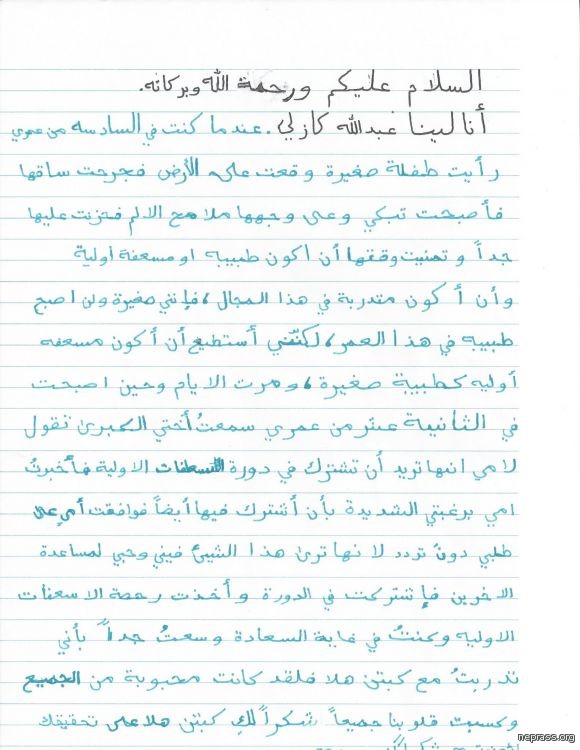 السلام عليكم ورحمة الله وبركاته.
أنا لينا عبدالله كازلي. عندما كنت في السادسه من عمري
رأيت طفلة صغيرة وقعت على الأرض فجرحت ساقها
فأصبحت تبكي وعلى وجهها ملامح الالم فحزنت عليها
جداً وتمنيت وقتها أن أكون طبيبه او مسعفة اولية
وأن أكون متدربة في هذا المجال، فإنني صغيرة ولن اصبح
طبيبه في هذا العمر، لكنني أستطيع أن أكون مسعفه
أوليه كطبيبة صغيرة، ومرت الايام وحين اصبحت
في الثانية عشر من عمري سمعتُ أختي الكبرى تقول
لامي انها تريد أن تشترك في دورة الاولية فأخبرتُ
امي برغبتي الشديدة بأن أشترك فيها أيضاً فوافقت أمي على
طلبي دونَ تردد لانها ترى هذا الشيئ فيني وحبي لمساعدة
الاخرين فإشتركت في الدورة وأخذت رخصة الاسعفات
الاوليه وكنتُ في غاية السعادة وسعتُ جداً بأني
تدربتُ مع كبتن هلا فلقد كانت محبوبة من الجميع
وكسبت قلوبنا جميعاً شكراً لكِ كبتن هلا على تحقيقك
neprass.org